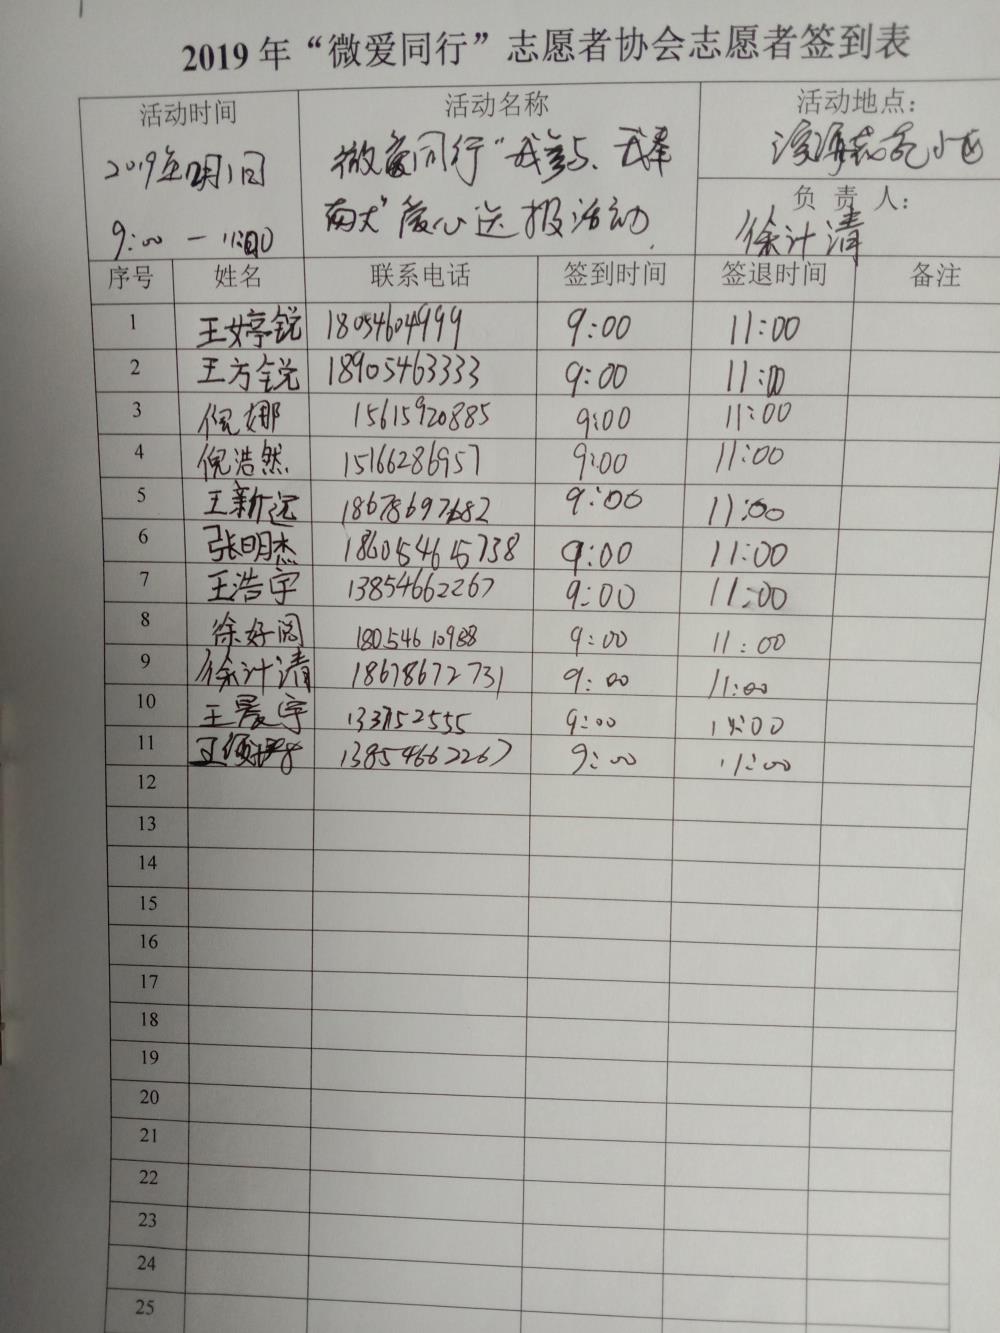 2019 年“微爱同行”志愿者协会志愿者签到表
活动时间 活动名称 活动地点：
2019年12月1日 微爱同行“我参与、我奉 滨海 小区
9:00 — 11:00 献”爱心送报活动 负 责 人：
徐计清
序号 姓名 联系电话 签到时间 签退时间 备注
1 王婷锐 18054604999 9:00 11:00
2 王方锐 18905463333 9:00 11:00
3 倪娜 15615920885 9:00 11:00
4 倪浩然 15166286957 9:00 11:00
5 王新远 18678697682 9:00 11:00
6 张明杰 18601545738 9:00 11:00
7 王浩宇 13854662267 9:00 11:00
8 徐好阅 18054610988 9:00 11:00
9 徐计清 18678672731 9:00 11:00
10 王晨宇 9:00 11:00
11 13854662267 9:00 11:00
12
13
14
15
16
17
18
19
20
21
22
23
24
25